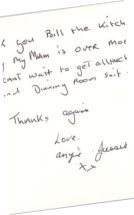 you Bill the Kitch
My Mum is over
wait to get all
Dinning Room suit
Thanks again
Love.
Angie
x